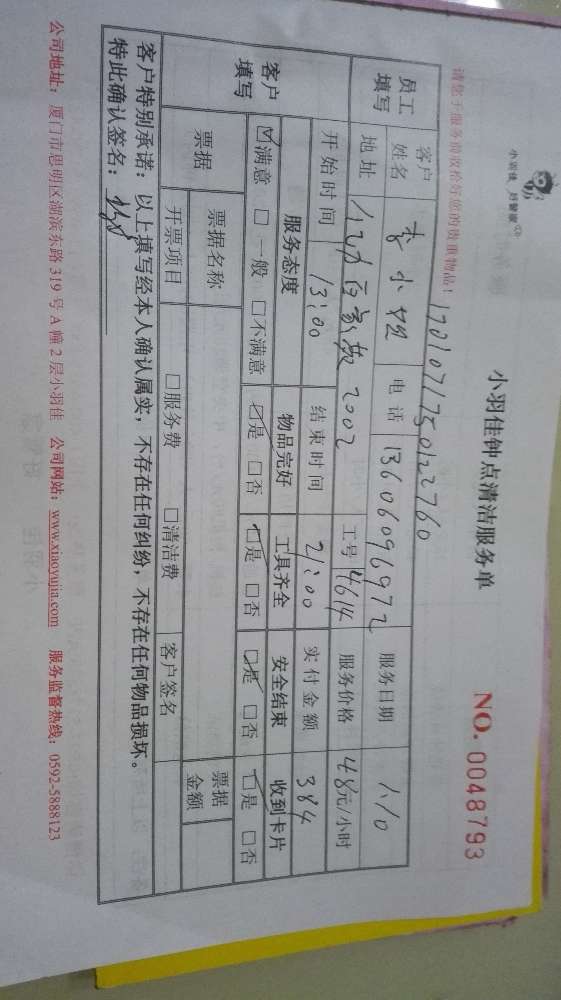 小羽佳 好管家
小羽佳钟点清洁服务单
NO. 0048793
请您于服务前收拾好您的贵重物品！ 1701071750122760
员工填写 客户姓名 李小姐 电话 13606096972 服务日期 1.10
地址 2002 工号 4614 服务价格 48元/小时
客户填写 开始时间 13:00 结束时间 21:00 实付金额 384
服务态度 物品完好 工具齐全 安全结束 收到卡片
☑满意 □一般 □不满意 ☑是 □否 ☑是 □否 ☑是 □否 ☑是 □否
票据 票据名称 票据金额
开票项目 □服务费 □清洁费 客户签名
客户特别承诺：以上填写经本人确认属实，不存在任何纠纷，不存在任何物品损坏。
特此确认签名：
公司地址：厦门市思明区湖滨东路 319 号 A 幢 2 层小羽佳 公司网站：www.xiaoyujia.com 服务监督热线：0592-5888123